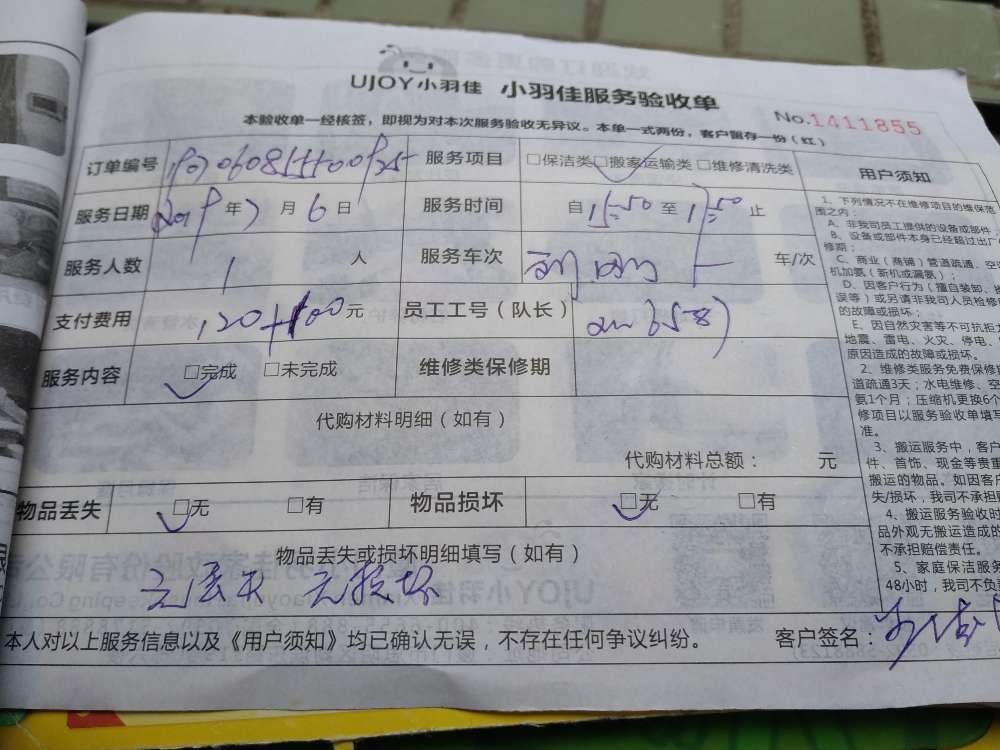 UJOY小羽佳 小羽佳服务验收单
No.1411855
本验收单一经核签，即视为对本次服务验收无异议。本单一式两份，客户留存一份（红）
订单编号 服务项目 □保洁类□搬家运输类 □维修清洗类 用户须知
服务日期 2019年7月6日 服务时间 自15:50至17:50止
服务人数 1人 服务车次 车/次
支付费用 120+100元 员工工号（队长）
服务内容 □完成 □未完成 维修类保修期
代购材料明细（如有）
代购材料总额： 元
物品丢失 □无 □有 物品损坏 □无 □有
物品丢失或损坏明细填写（如有）
无丢失 无损坏
本人对以上服务信息以及《用户须知》均已确认无误，不存在任何争议纠纷。 客户签名：
1、下列情况不在维修项目的维保范
围之内：
A、非我司员工提供的设备或部件
B、设备或部件本身已经超过出厂
修期；
C、商业（商铺）管道疏通、空
机加氨（新机或漏氨）；
D、因客户行为（擅自装卸、
误等）或另请非我司人员检修
的故障或损坏；
E、因自然灾害等不可抗
地震、雷电、火灾、停电、
原因造成的故障或损坏。
2、维修类服务免费保修
道疏通3天；水电维修、空
氨1个月；压缩机更换6个
修项目以服务验收单填写
准。
3、搬运服务中，客户
件、首饰、现金等贵重
搬运的物品。如因客户
失/损坏，我司不承担
4、搬运服务验收时
品外观无搬运造成的
不承担赔偿责任。
5、家庭保洁服务
48小时，我司不负